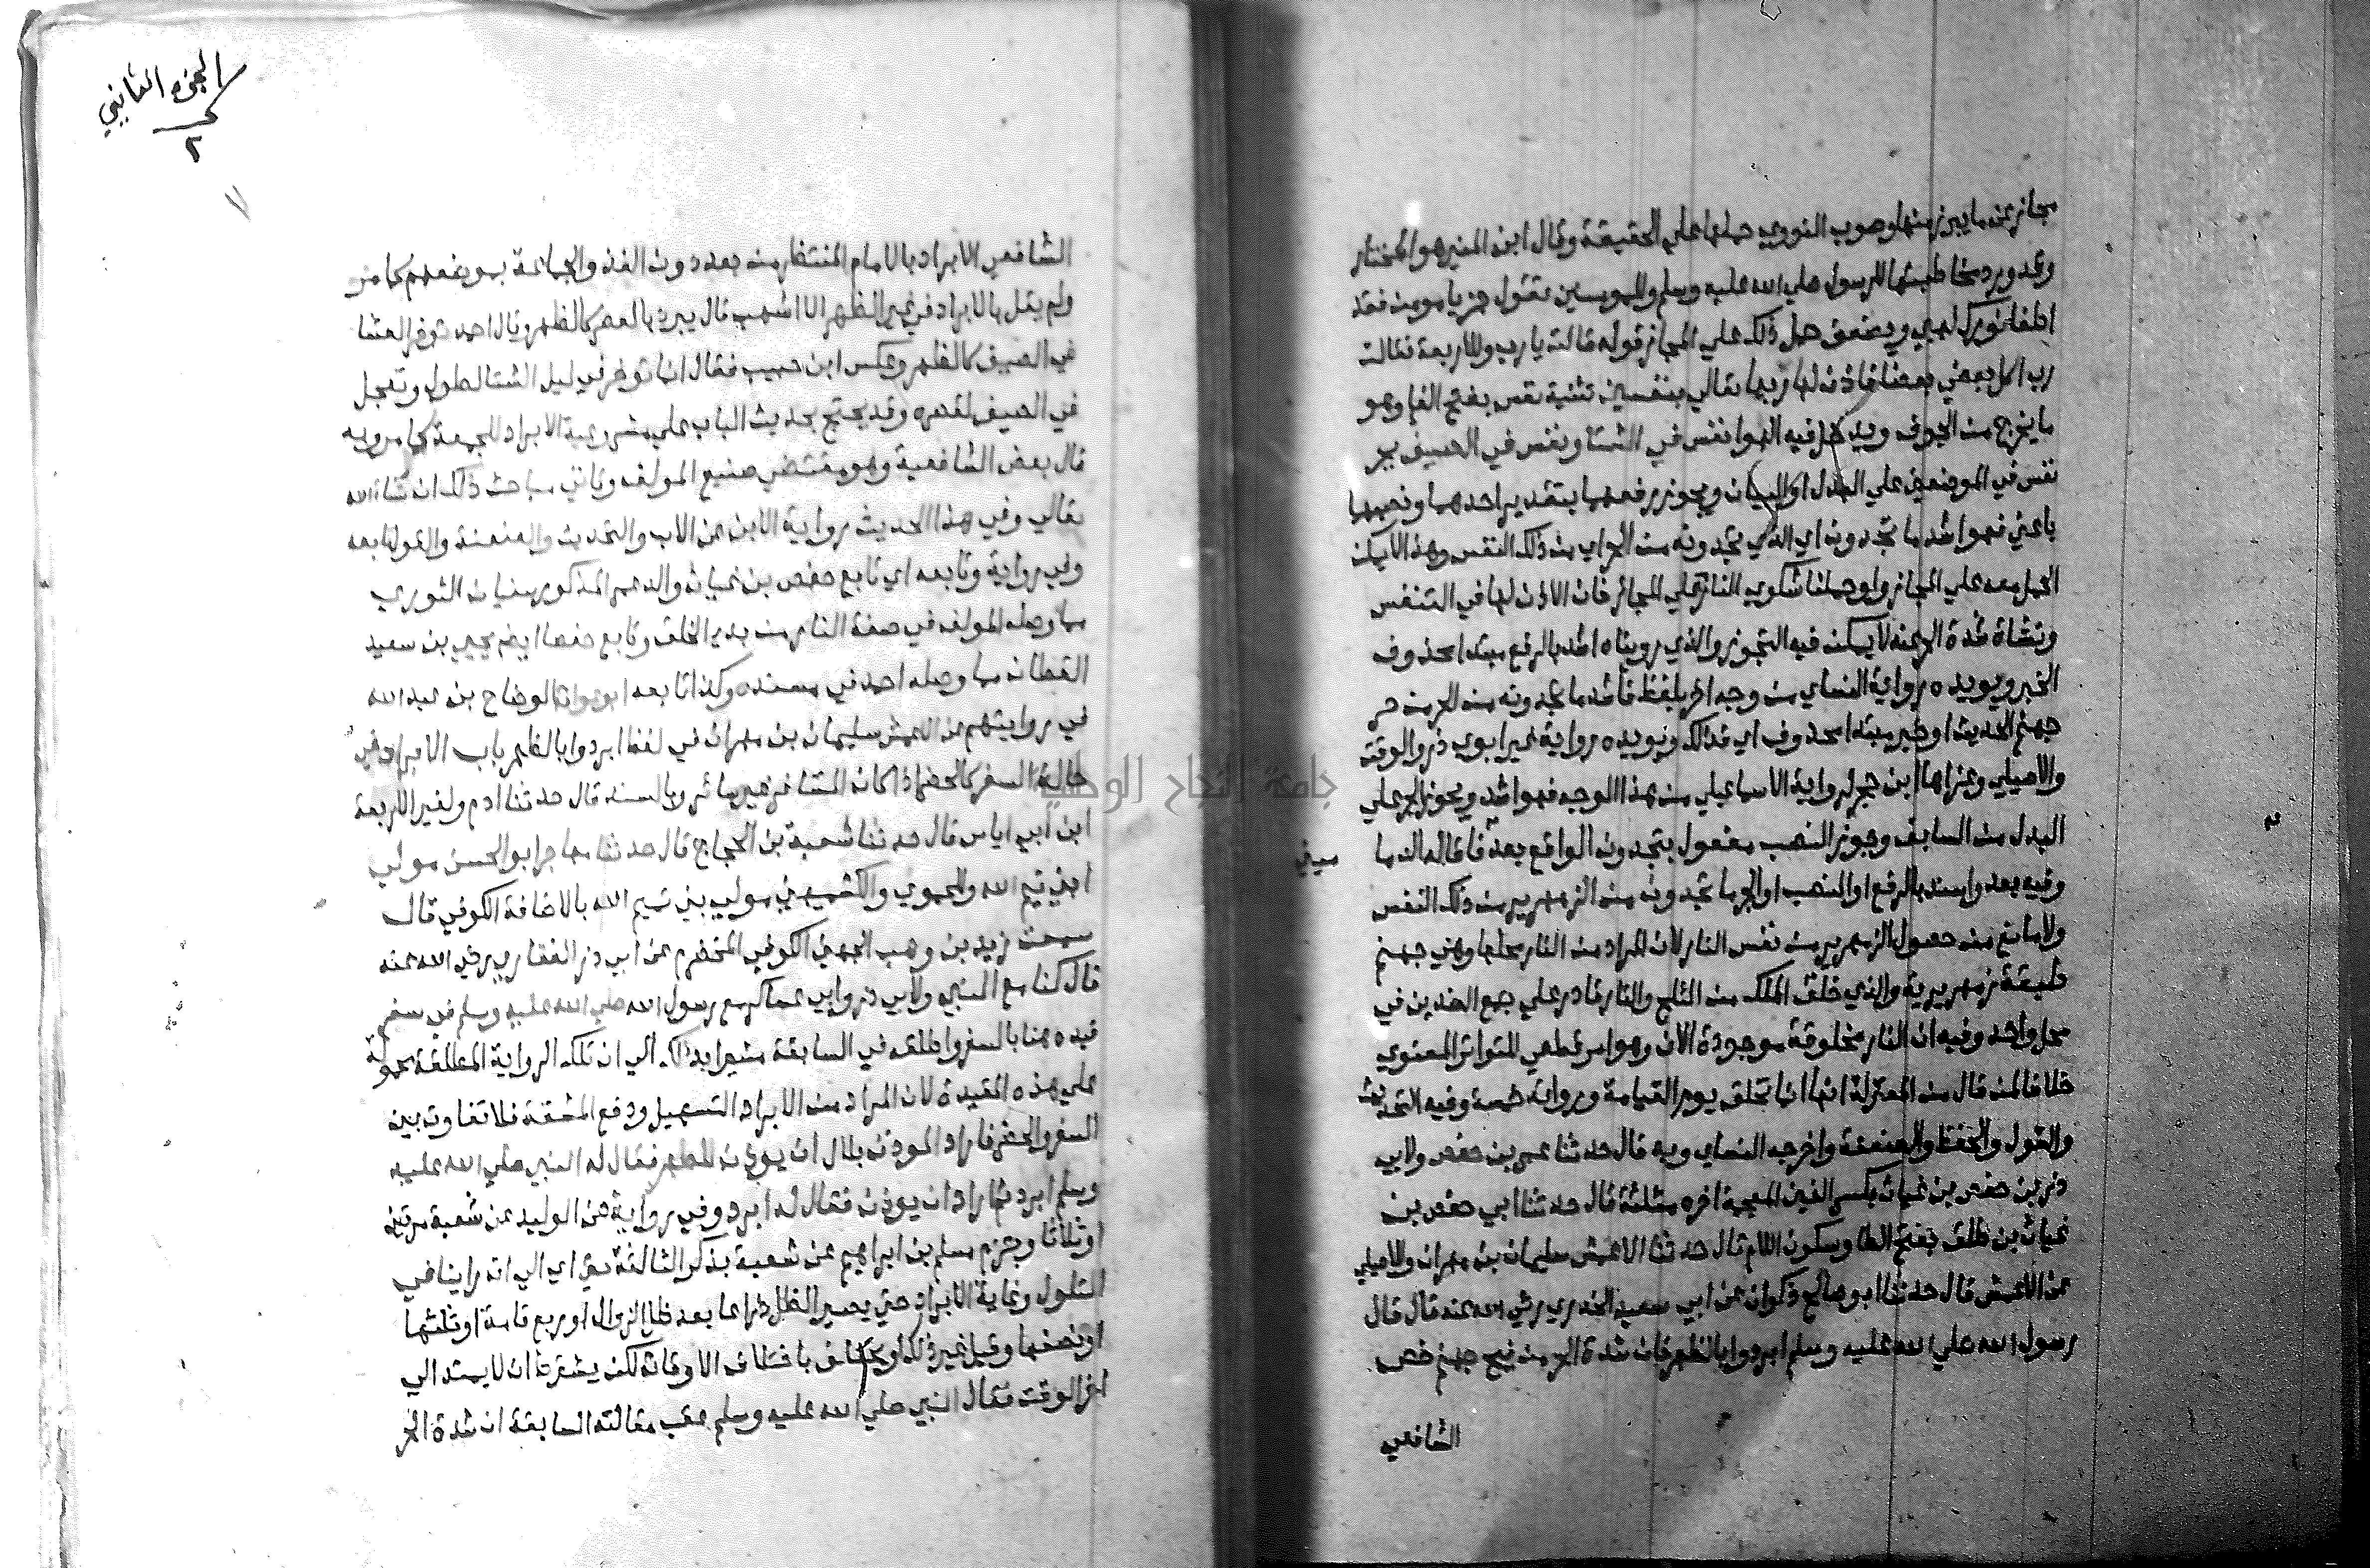 مجاز عن ما يبرز منها وصوب النووي حملها علي الحقيقة وقال ابن المنير هو المختار
وقد ورد مخاطبتها للرسول صلي الله عليه وسلم وللمومنين بقول جز يا مومن فقد
اطفا نورك لهبي ويضعف حمل ذلك علي المجاز قوله فقالت يا رب وللاربعة فقالت
رب اكل بعضي بعضا فاذن لها ربها تعالي بنفسين تثنية نفس بفتح الفا وهو
ما يخرج من الجوف ويدخل فيه الهوا نفس في الشتا ونفس في الصيف بجر
نفس في الموضعين علي البدل او البيان ويجوز رفعهما بتقدير احدهما ونصبهما
باعني فهو اشد ما تجدون اي الذي تجدونه من الحر اي من ذلك النفس وهذا لا يمكن
الحمل معه علي المجاز ولو حملنا شكوي النار علي المجاز فان الاذن لها في التنفس
ونشاة شدة الحر عنه لا يمكن فيه التجوز والذي رويناه اشد بالرفع مبتدا محذوف
الخبر ويويده رواية النساي من وجه اخر بلفظ فاشد ما تجدونه من الحر من حر
جهنم الحديث او خبر مبتدا محذوف اي فذلك ويويده رواية غير ابوي ذر والوقت
والاصيلي وعزاها ابن حجر لرواية الاسماعيلي من هذا الوجه فهو اشد ويجوز الجر علي
البدل من السابق وجوز النصب مفعول بتجدون الواقع بعد قال الدما
ميني
وفيه بعد واشد بالرفع او النصب او الجر ما تجدونه من الزمهرير من ذلك النفس
ولا مانع من حصول الزمهرير من نفس النار لان المراد من النار محلها وهي جهنم
طبقة زمهريرية والذي خلق الملك من الثلج والنار قادر علي جمع الضدين في
محل واحد وفيه ان النار مخلوقة موجودة الان وهو امر قطعي للتواتر المعنوي
خلافا لمن قال من المعتزلة انها انما تخلق يوم القيامة ورواته خمسة وفيه التحديث
والقول والحفظ والعنعنة واخرجه النساي وبه قال حدثنا عمر بن حفص ولابي
ذر بن حفص بن غياث بكسر الغين المعجمة اخره مثلثة قال حدثنا ابي حفص بن
غياث بن طلق بفتح الطا وسكون اللام قال حدثنا الاعمش سليمان بن مهران وللاصيلي
عن الاعمش قال حدثنا ابو صالح ذكوان عن ابي سعيد الخدري رضي الله عنه قال قال
رسول الله صلي الله عليه وسلم ابردوا بالظهر فان شدة الحر من فيح جهنم خص
الشافعي
الجزء الثاني
٢
الشافعي الابراد بالامام المنتظر من بعد دون الفذ والجماعة بموضعهم كما مر
ولم يقل بالابراد في غير الظهر الا اشهب قال يبرد بالعصر كالظهر وقال احمد توخر العشا
في الصيف كالظهر وعكس ابن حبيب فقال انما توخر في ليل الشتا لطوله وتعجل
في الصيف لقصره وقد يحتج بحديث الباب علي مشروعية الابراد للجمعة كما مر وبه
قال بعض الشافعية وهو مقتضي صنيع المولف وياتي مباحث ذلك ان شاء الله
تعالي وفي هذا الحديث رواية الابن عن الاب والتحديث والعنعنة والقول تابعه
وفي رواية وتابعه اي تابع حفص بن غياث والد عمر المذكور سفيان الثوري
مما وصله المولف في صفة النار من بدء الخلق وتابع حفصا ايضا يحيي بن سعيد
القطان مما وصله احمد في مسنده وكذا تابعه ابو عوانة الوضاح بن عبد الله
في روايتهم عن الاعمش سليمان بن مهران في لفظ ابردوا بالظهر باب الابراد في
حالة السفر كالحضر اذا كان المسافر غير سائر وبالسند قال حدثنا ادم ولغير الاربعة
ابن ابي اياس قال حدثنا شعبة بن الحجاج قال حدثنا مهاجر ابو الحسن مولي
ابن تيم الله وللحموي والكشميهني مولي بني تيم الله بالاضافة الكوفي قال
سمعت زيد بن وهب الجهني الكوفي المخضرم عن ابي ذر الغفاري رضي الله عنه
قال كنا مع النبي ولابي ذر وابي عساكر مع رسول الله صلي الله عليه وسلم في سفر
قيده هنا بالسفر واطلقه في السابقة مشيرا بذلك الي ان تلك الرواية المطلقة محمولة
علي هذه المقيدة لان المراد من الابراد التسهيل ودفع المشقة فلا تفاوت بين
السفر والحضر فاراد الموذن بلال ان يوذن للظهر فقال له النبي صلي الله عليه
وسلم ابرد ثم اراد ان يوذن فقال له ابرد وفي رواية عن الوليد عن شعبة مرتين
او ثلاثا وجزم مسلم بن ابراهيم عن شعبة بذكر الثالثة حتي اي الي ان راينا في
التلول وغاية الابراد حتي يصير الظل ذراعا بعد ظل الزوال او ربع قامة او ثلثها
او نصفها وقيل غير ذلك او يختلف باختلاف الاوقات لكن يشترط ان لا يمتد الي
اخر الوقت فقال النبي صلي الله عليه وسلم عقب مقالته السابقة ان شدة الحر
جامعة النجاح الوطنية